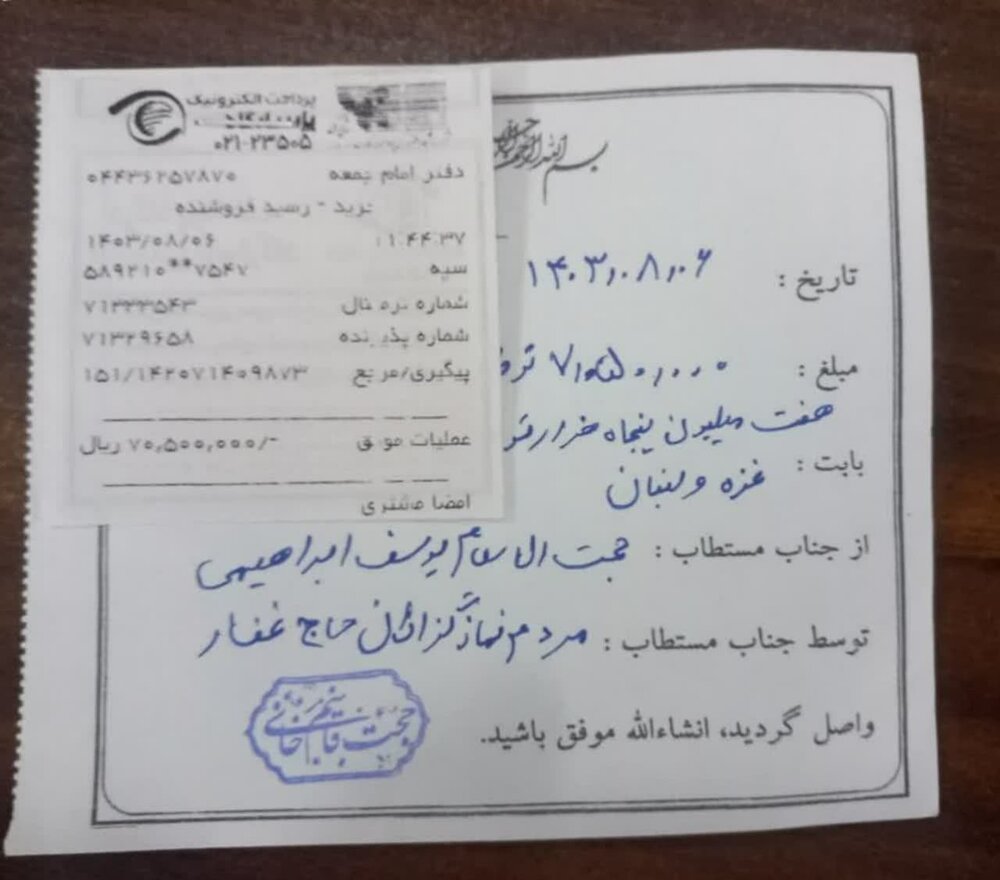 پرداخت الکترونیک
۰۲۱-۲۳۵۰۵
دفتر امام جمعه ۰۴۴۳۶۲۵۷۸۷۰
خرید - رسید فروشنده
۱۴۰۳/۰۸/۰۶ ۱۱:۴۴:۳۷
سپه ۵۸۹۲۱۰**۷۵۴۷
شماره ترمینال ۷۱۳۳۳۵۴۳
شماره پذیرنده ۷۱۳۲۹۶۵۸
پیگیری/مرجع ۱۵۱/۱۴۲۰۷۱۴۰۹۸۷۳
عملیات موفق ۷۰,۵۰۰,۰۰۰/- ریال
امضا مشتری
بسم الله الرحمن الرحیم
تاریخ : ۱۴۰۳,۰۸,۰۶
مبلغ : ۷,۰۵۰,۰۰۰
هفت میلیون پنجاه هزار
بابت : غزه و لبنان
از جناب مستطاب : حجت الاسلام یوسف ابراهیمی
توسط جناب مستطاب : مردم نمازگزاران حاج غفار
واصل گردید، انشاءالله موفق باشید.